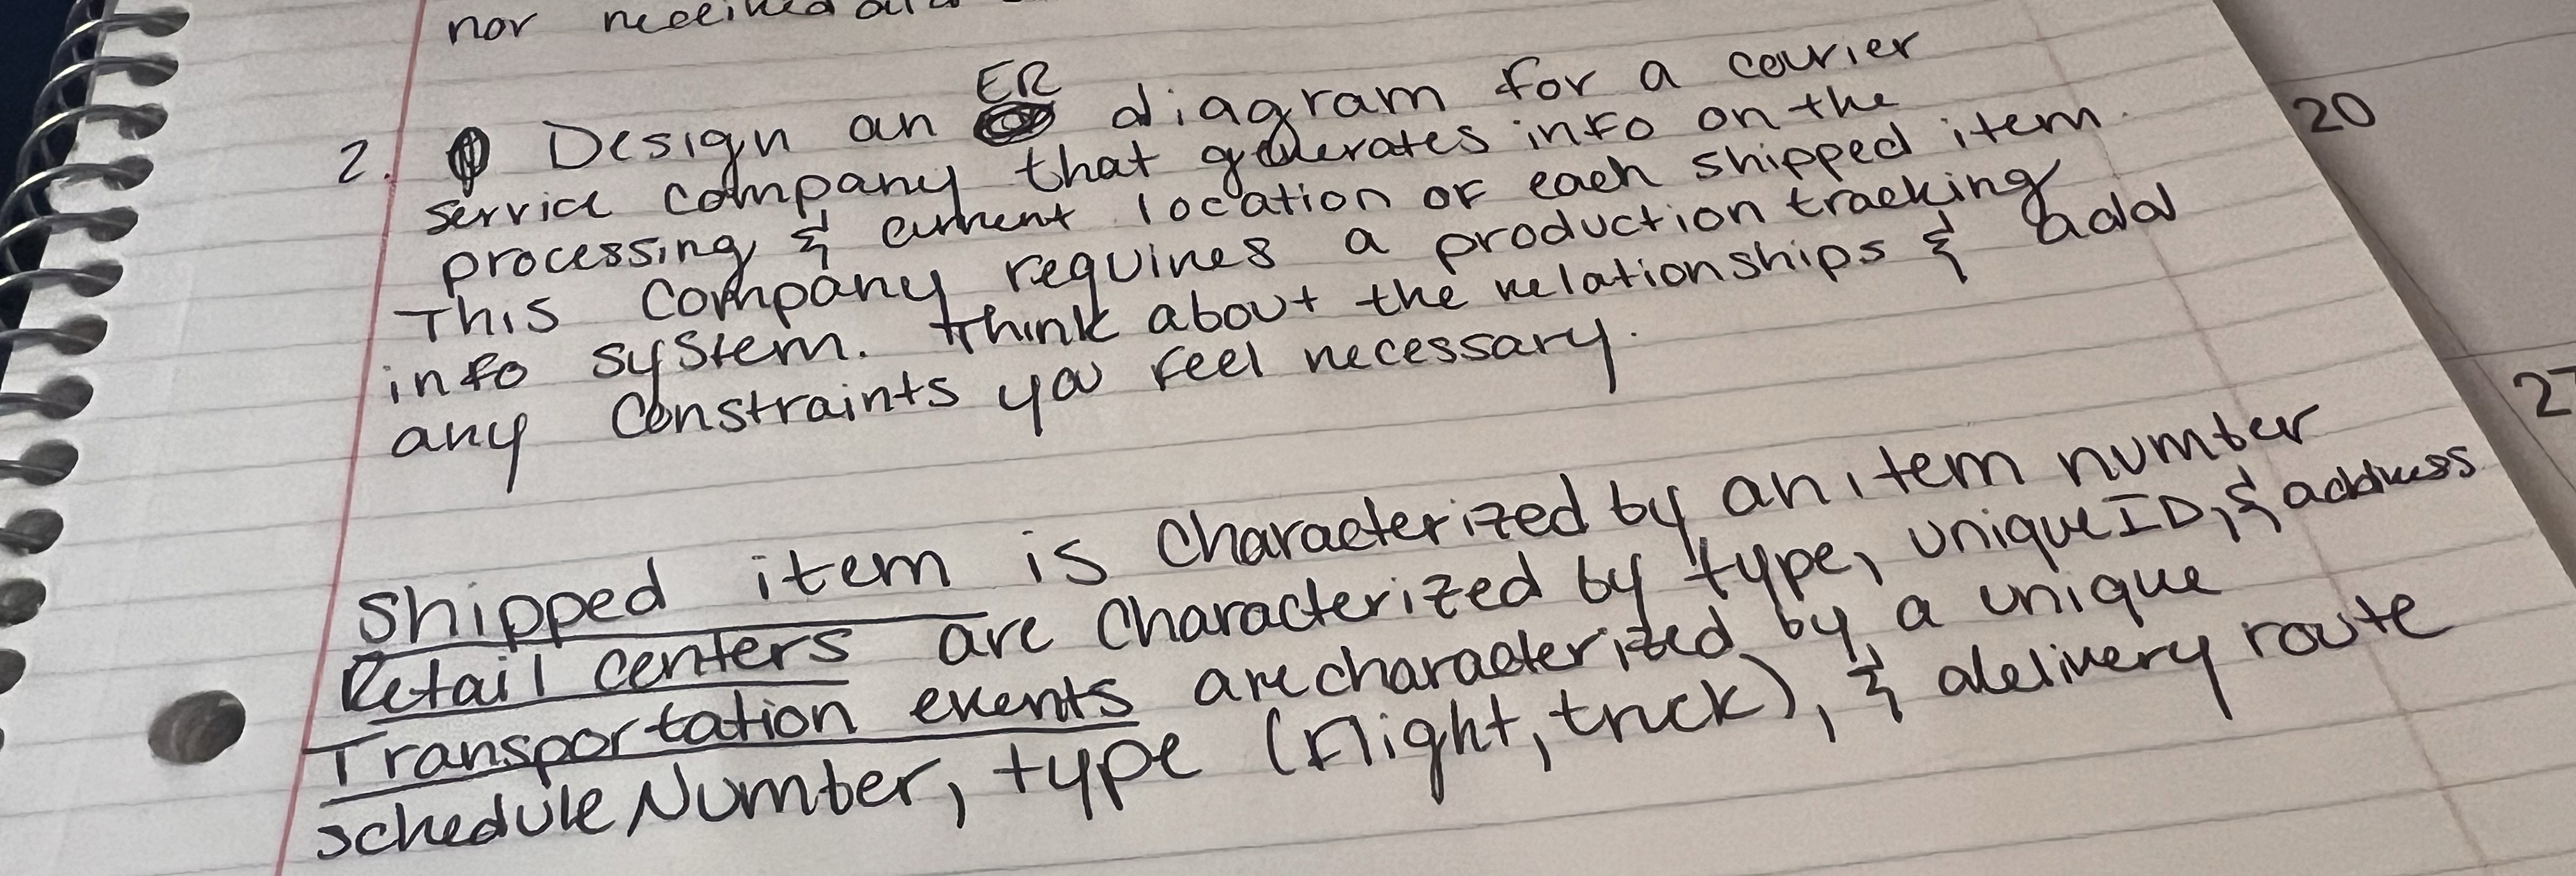 nor
2. Design an ER diagram for a courier
service company that generates info on the
processing & current location of each shipped item.
This company requires a production tracking
info system. Think about the relationships & add
any constraints you feel necessary.
Shipped item is characterized by an item number
Retail centers are characterized by type, unique ID, & address
Transportation events are characterized by a unique
schedule Number, type (flight, truck), & delivery route
20
27